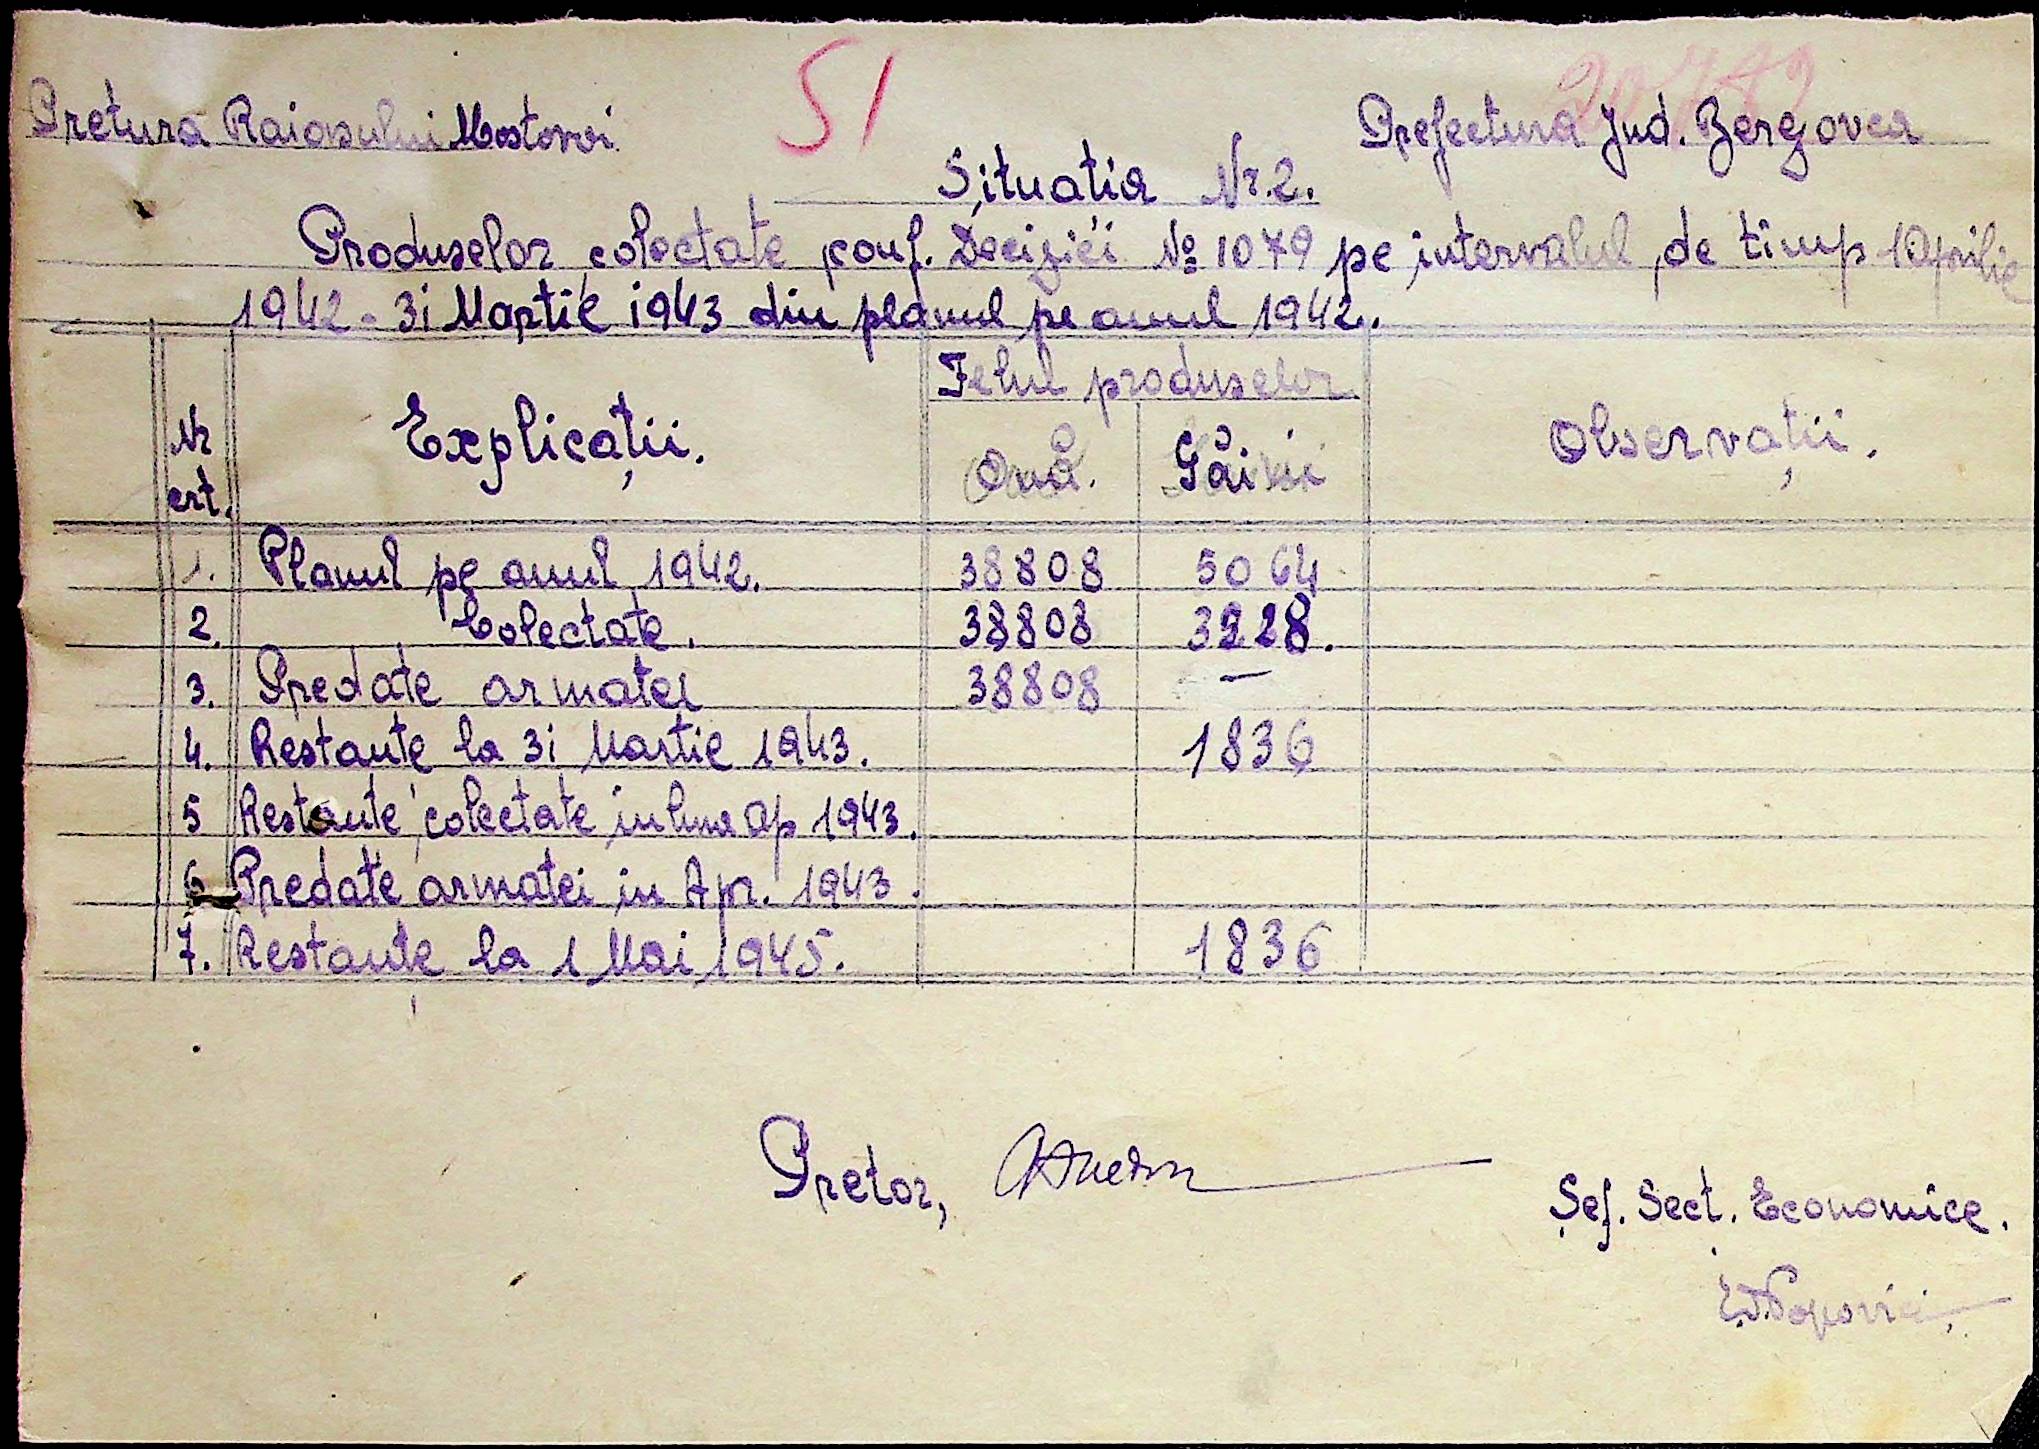 51
Pretura Raionului Mostovoi
Prefectura Jud. Berezovca
Situatia Nr. 2.
Produselor colectate conf. Deciziei № 1079 pe intervalul de timp 1 Aprilie
1942 - 31 Martie 1943 din planul pe anul 1942.
Nr crt. Explicații. Felul produselor Observații.
Ouă. Găini
1. Planul pe anul 1942. 38808 5064
2. Colectate. 38808 3228.
3. Predate armatei 38808 —
4. Restanțe la 31 Martie 1943. 1836
5 Restanțe colectate in luna Ap 1943.
6 Predate armatei in Apr. 1943.
7. Restanțe la 1 Mai 1945. 1836
Pretor,
Șef. Sect. Economice.
Popovici